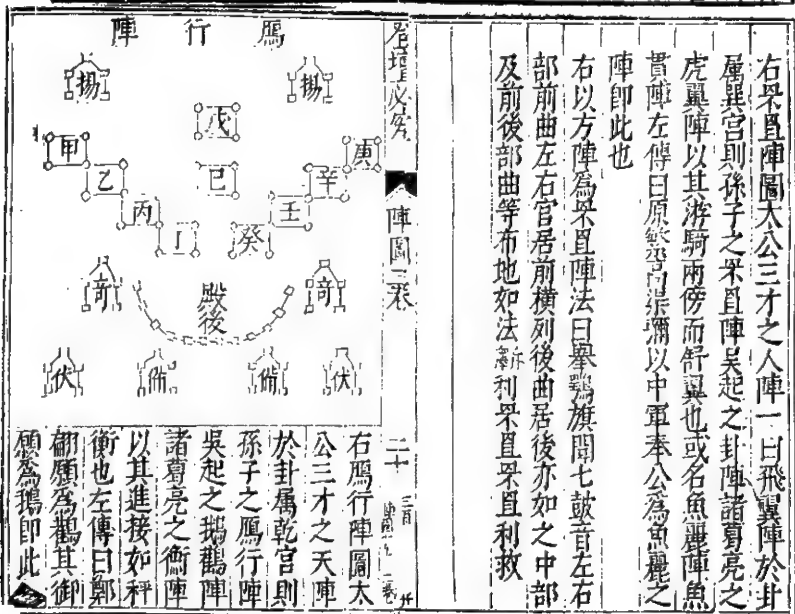 右罘罝陣圖太公三才之人陣一曰飛翼陣於卦
属巽宫則孫子之罘罝陣吴起之卦陣諸葛亮之
虎翼陣以其游騎兩傍而舒翼也或名魚麗陣魚
貫陣左傳曰原繁高渠彌以中軍奉公為魚麗之
陣即此也
右以方陣為罘罝陣法曰舉鶡旗聞七鼓音左右
部前曲左右官居前横列後曲居後亦如之中部
及前後部曲等布地如法利罘罝罘罝利救
登壇必究
陣圖三卷
二十
鴈行陣
揚
揚
戊
甲
庚
乙
己
辛
丙
壬
丁
癸
竒
竒
殿後
伏
備
備
伏
右鴈行陣圖太
公三才之天陣
於卦属乾宫則
孫子之鴈行陣
吴起之鵝鸛陣
諸葛亮之衡陣
以其進接如秤
衡也左傳曰鄭
翩願為鸛其御
願為鵝即此